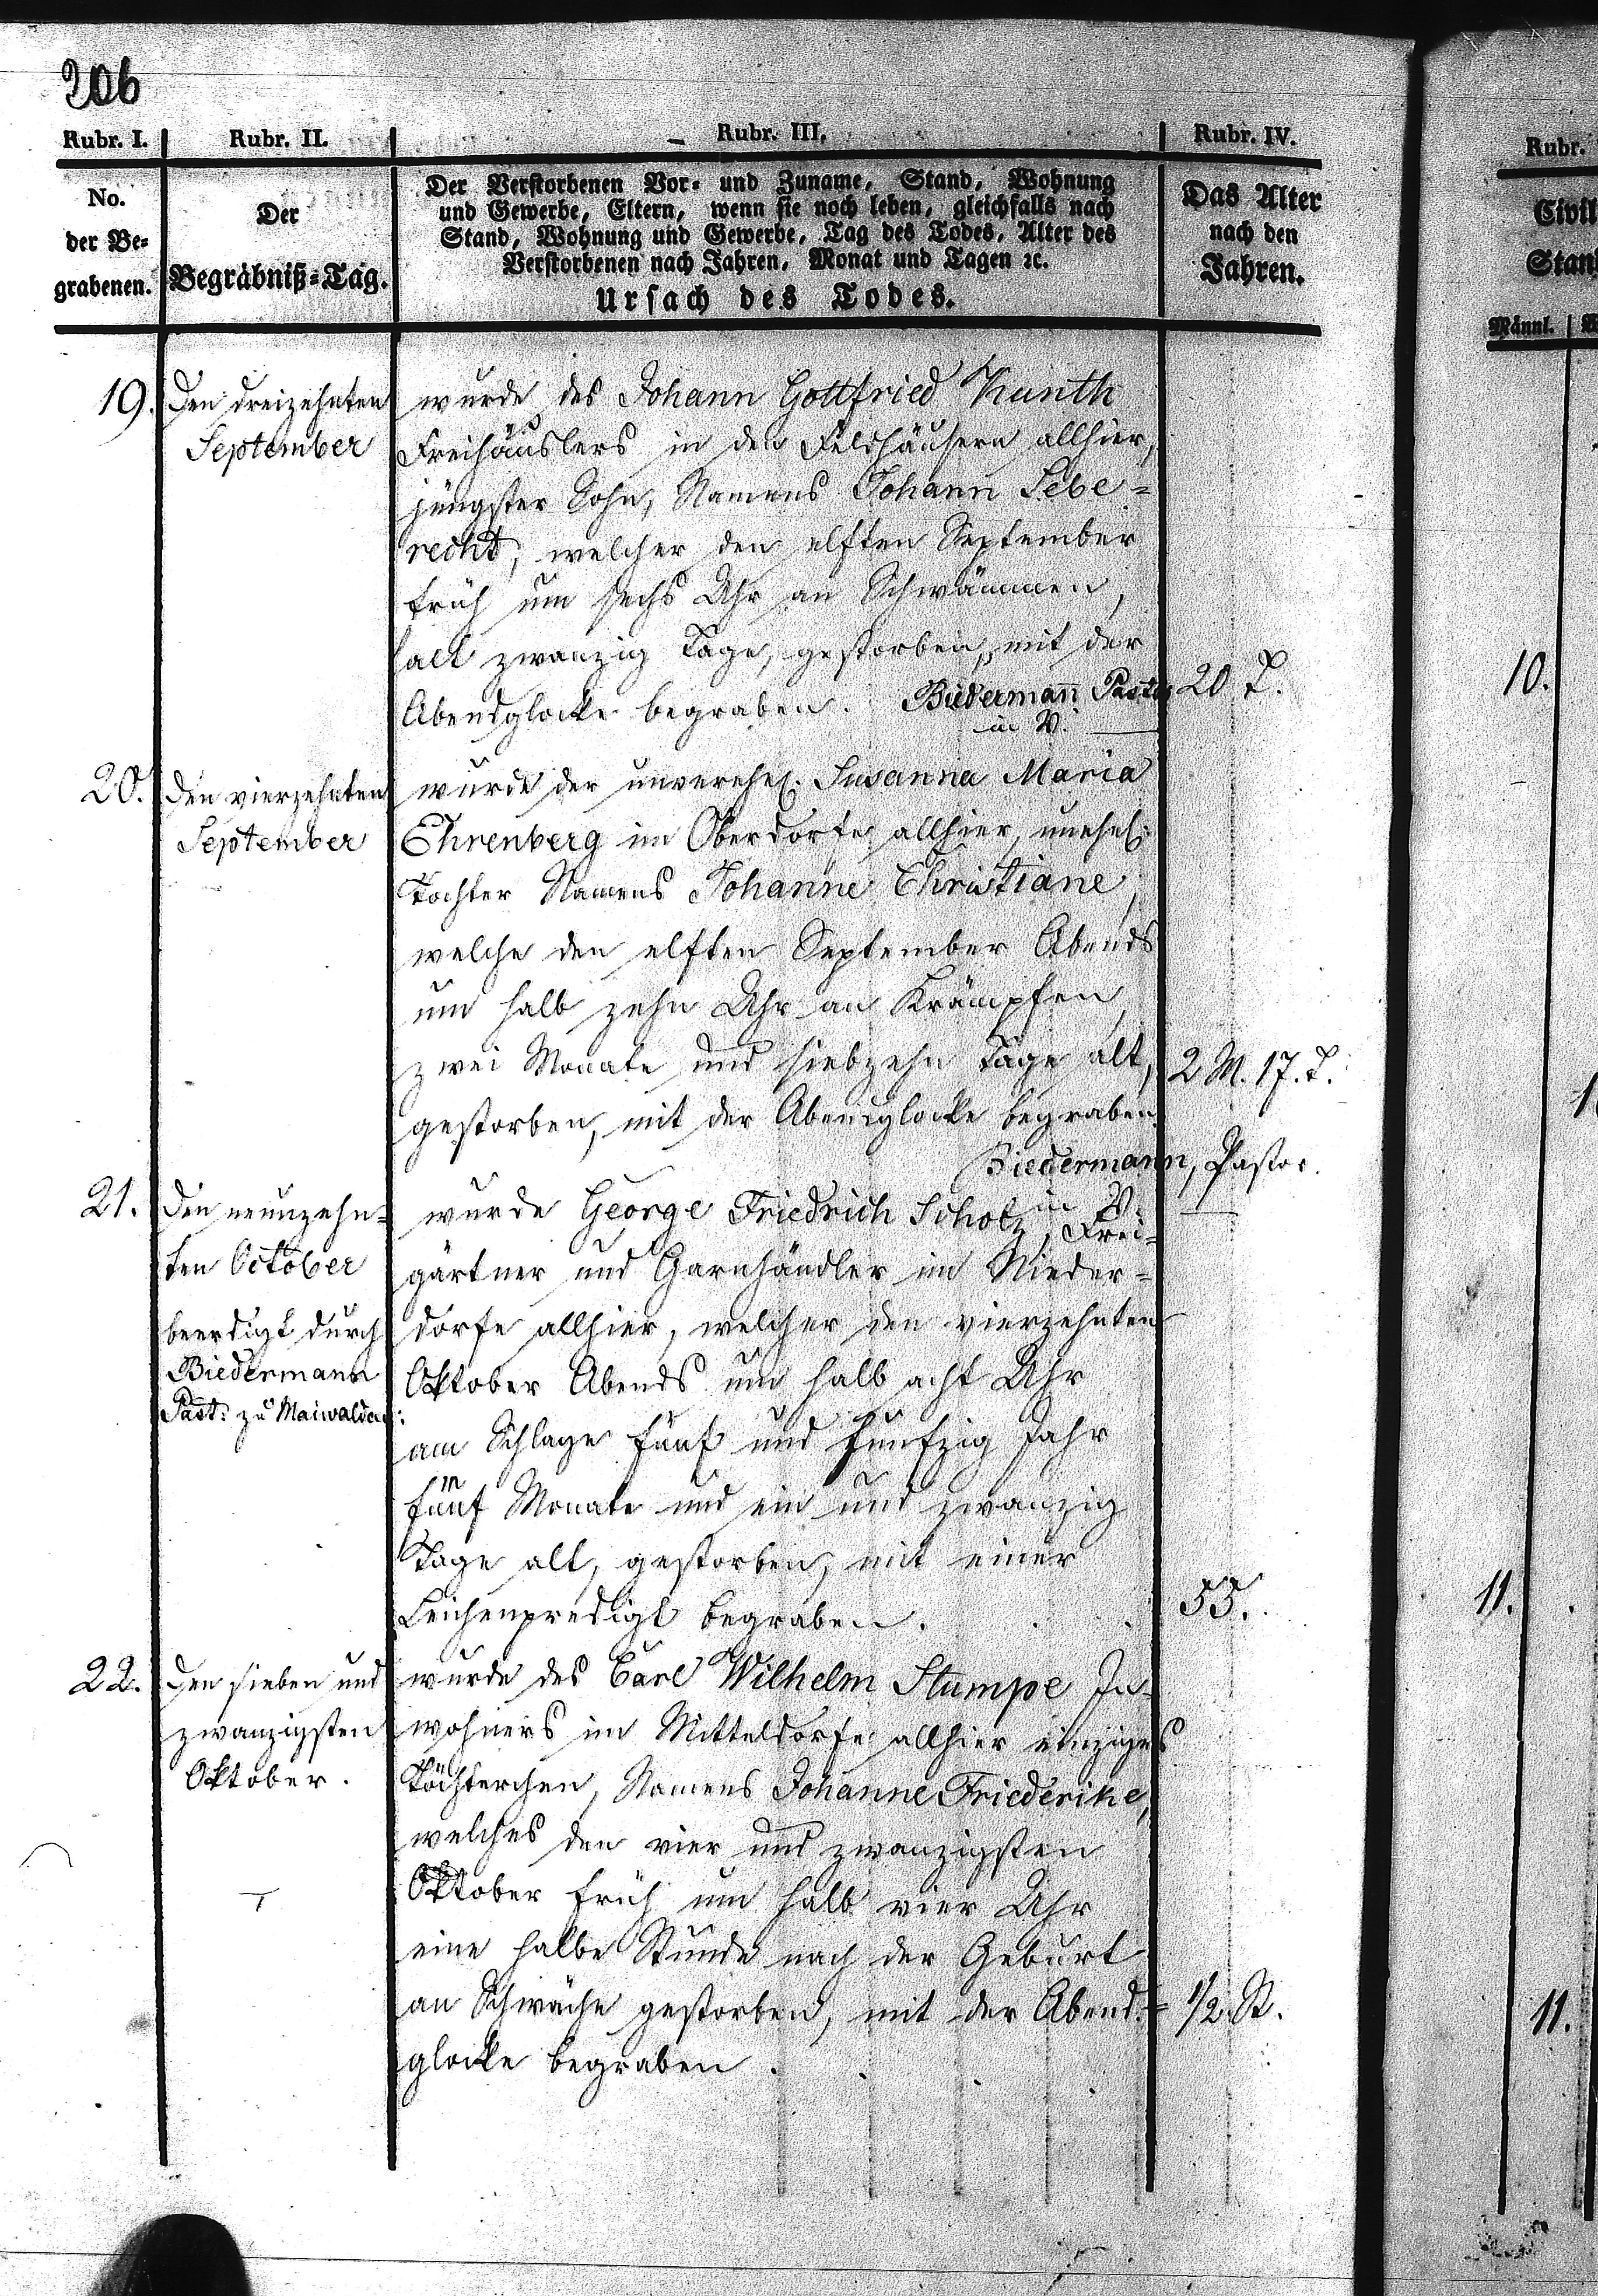 206
Rubr. I. Rubr. II. Rubr. III. Rubr. IV.
No.
der Be-
grabenen.
Der
Begräbniß-Tag.
Der Verstorbenen Vor- und Zuname, Stand, Wohnung
und Gewerbe, Eltern, wenn sie noch leben, gleichfalls nach
Stand, Wohnung und Gewerbe, Tag des Todes, Alter des
Verstorbenen nach Jahren, Monat und Tagen ꝛc.
Ursach des Todes.
Das Alter
nach den
Jahren.
19.
Den dreizehnten
September
wurde des Johann Gottfried Kunth
Freihäuslers in den Feldhäusern allhier,
jüngster Sohn, Namens Johann Lebe-
recht, welcher den elften September
früh um sechs Uhr an Schwämmen,
alt zwanzig Tage, gestorben, mit der
Abendglocke begraben. Biedermann Pastor
in V.
20 T.
20.
Den vierzehnten
September
wurde der unverehel. Susanna Maria
Ehrenberg im Oberdorfe allhier, unehel.
Tochter Namens Johanne Christiane,
welche den elften September Abends
um halb zehn Uhr an Krämpfen,
zwei Monate und siebzehn Tage alt,
gestorben, mit der Abendglocke begraben.
Biedermann, Pastor.
in V.
2 M. 17. T.
21.
Den neunzehn-
ten October
beerdigt durch
Biedermann
Past: zu Maiwaldau:
wurde George Friedrich Scholz, Frei-
gärtner und Garnhändler im Nieder-
dorfe allhier, welcher den vierzehnten
Oktober Abends um halb acht Uhr
am Schlage fünf und fünfzig Jahr
fünf Monate und ein und zwanzig
Tage alt, gestorben, mit einer
Leichenpredigt begraben.
55.
22.
Den sieben und
zwanzigsten
Oktober.
wurde des Carl Wilhelm Stumpe In-
wohners im Mitteldorfe allhier einziges
Töchterchen, Namens Johanne Friederike,
welches den vier und zwanzigsten
Oktober früh um halb vier Uhr
eine halbe Stunde nach der Geburt
an Schwäche gestorben, mit der Abend-
glocke begraben.
1/2 St.
Rubr.
Männl.
10.
11.
11.